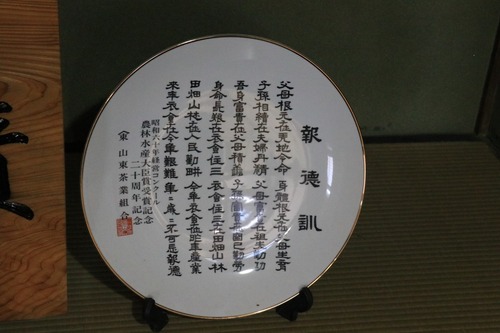 報德訓
父母根元在天地令命 身體根元在父母生育
子孫相續在夫婦丹精 父母富貴在祖先勤功
吾身富貴在父母積善 子孫富貴在自己勤労
身命長養在衣食住三 衣食住三在田畑山林
田畑山林在人民勤耕 今年衣食在昨年産業
来年衣食在今年艱難 年々歳々不可忘報德
昭和六十年経営コンクール
農林水産大臣賞受賞記念
二十周年記念
山東茶業組合